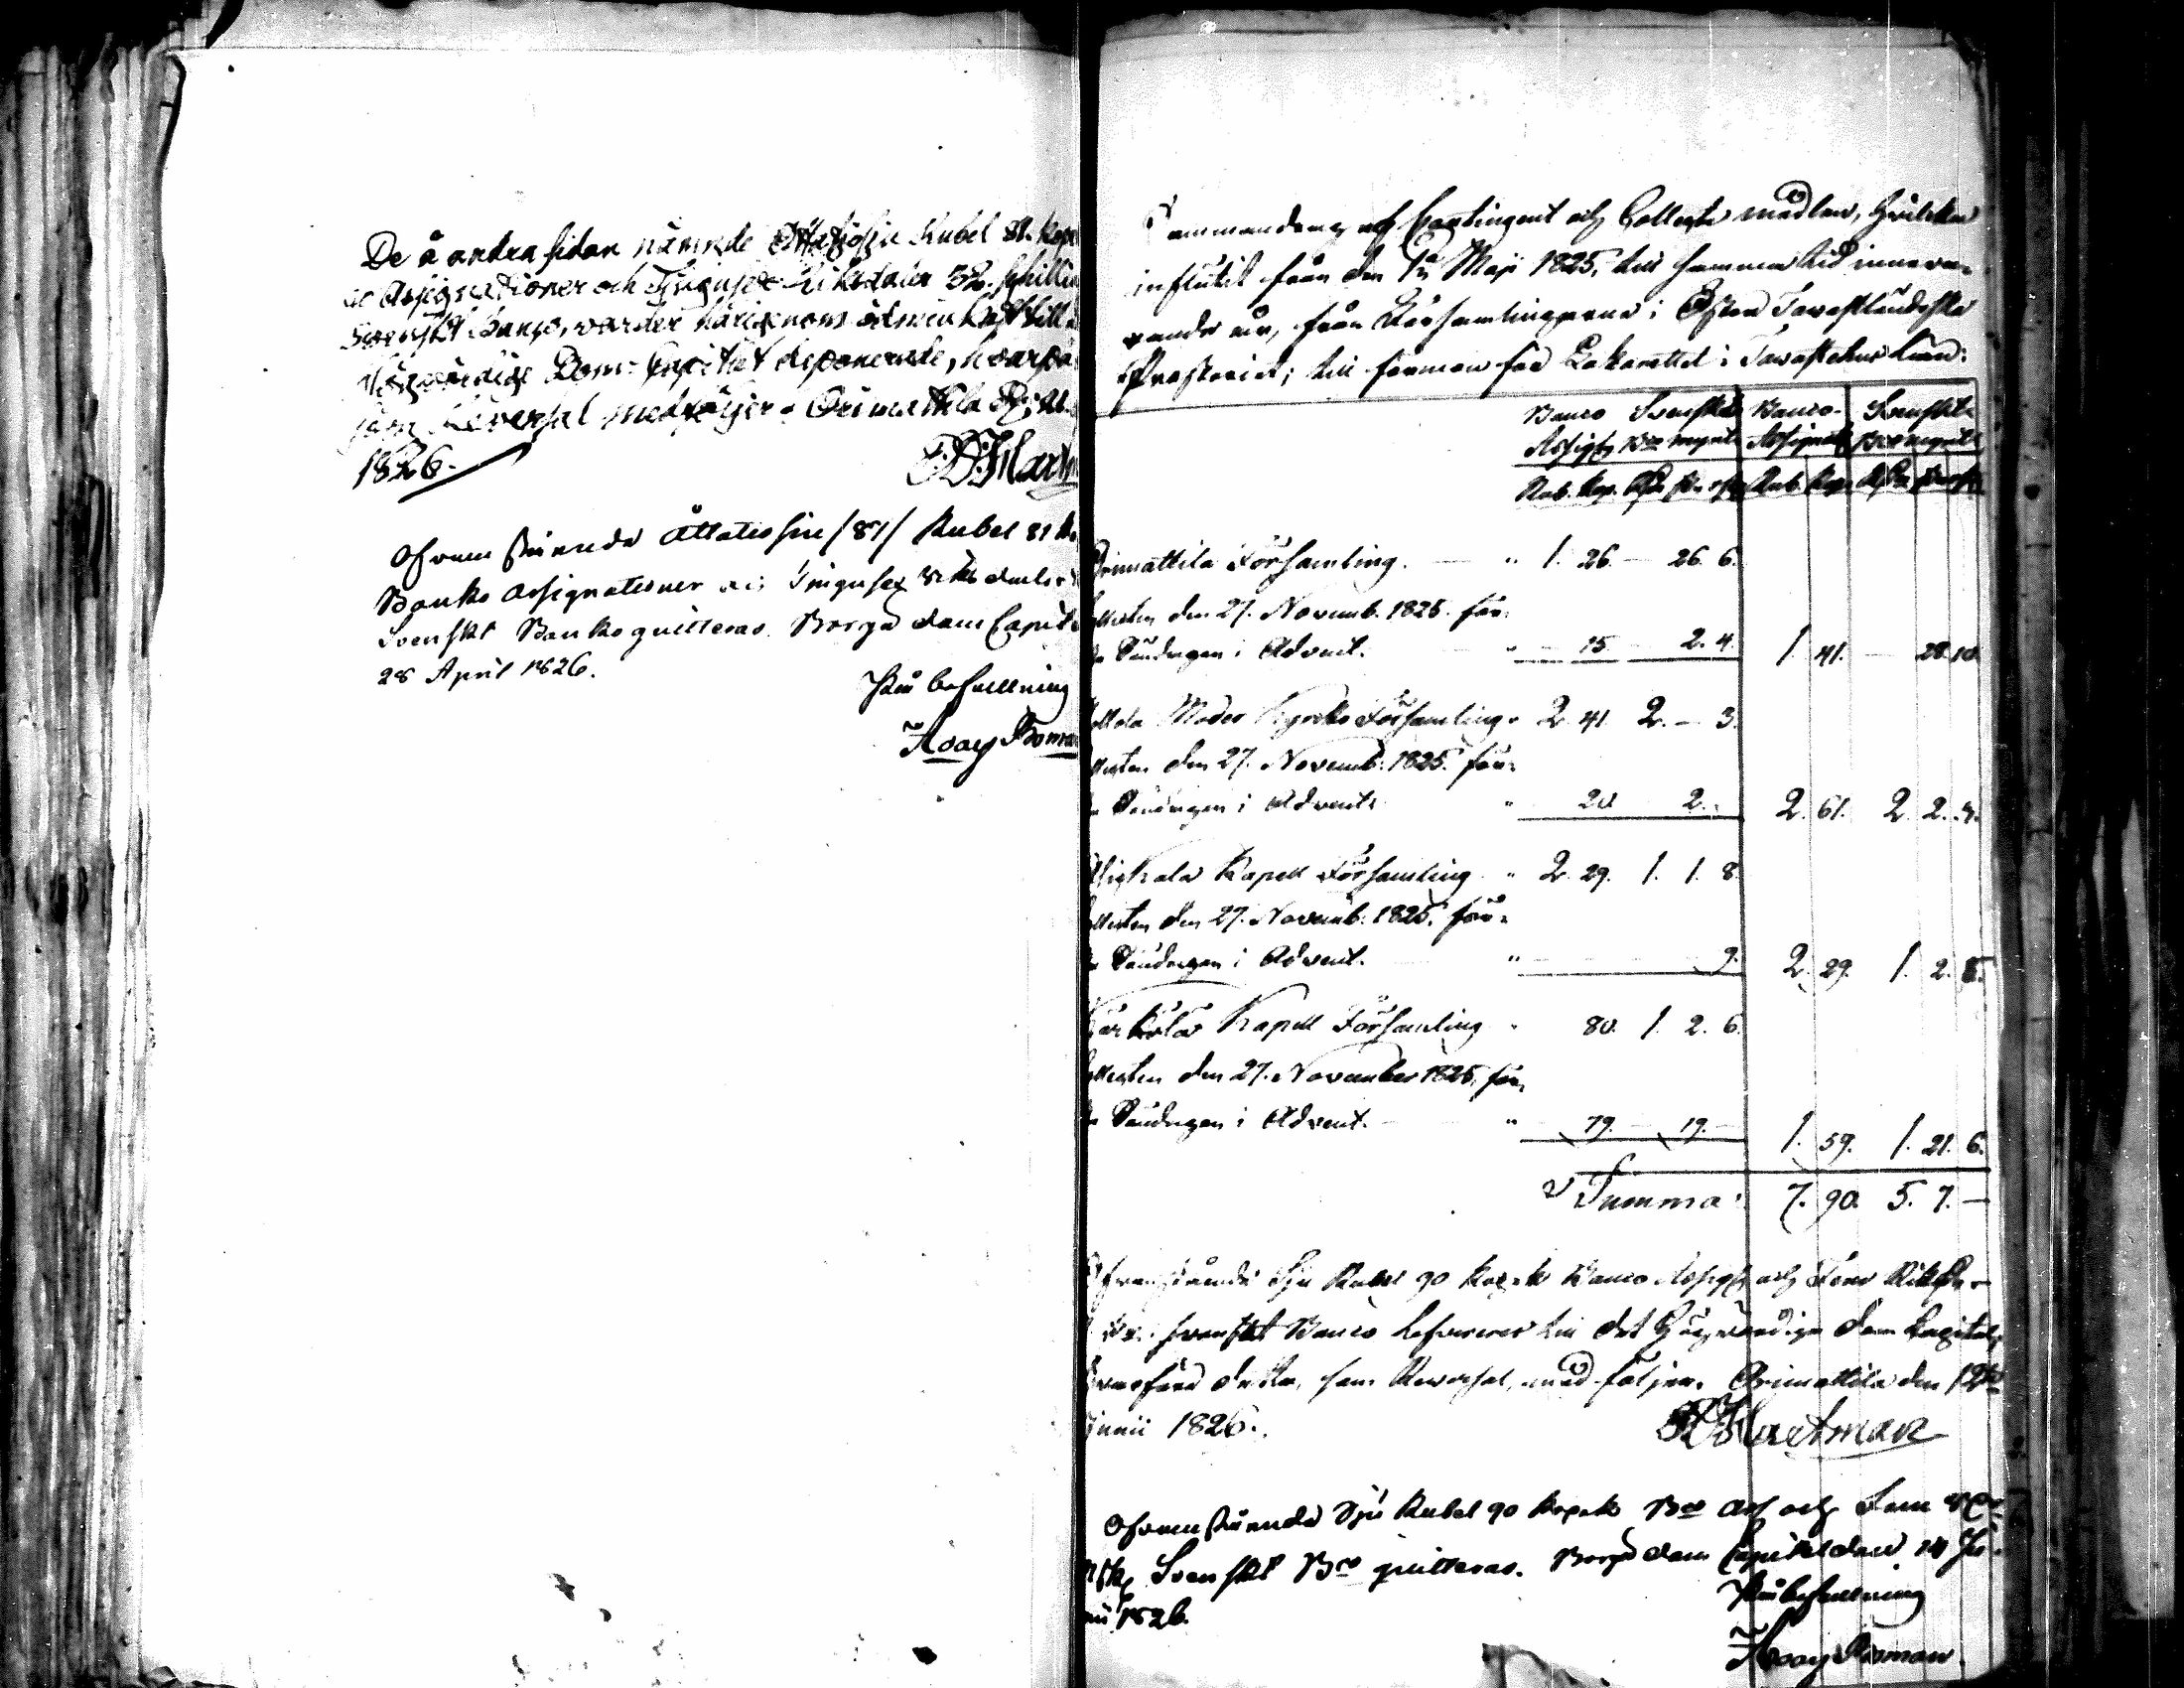 De å andra sidan nämnde Ottatiosju Rubel 81. kop
ac Assignationer och Tjugusex Riksdaler 32. schillin
Svenskt Banco, warder härigenom ödmiukast till
Högwördige Dom-Capitlet deponerade, hwarpå
som Reversal medföljer. Orimattila
1826.
Ofvanstående Åttatiosju /87/ Rubel 81
Banko Assignationer och Tjugusex Riksdaler
Svenskt Banko quitteras. Borgå dom Capit
28 April 1826.
På befallning
Isaac Boman
Sammandrag af Contingent och Collecte medlen, hvilka
influtit från den 1 Maji 1825, till samma tid innewa-
rande år, från Församlingarna i Östra Tavastländska
Prosteriet; till förmon för Lazarettet i Tavastehus Län:
Banco Svenskt Banco- Svenskt
Assign Bco mynt Assignat Bco mynt
Rub. kop. Rdr sk. rst Rub. kop. Rdr sk. rst
Orimattila Församling. " 1. 26. — 26. 6.
llecten den 27. Novemb. 1825. för-
Söndagen i Advent. " — 15. — 2. 4. 1. 41. — 28. 10.
ollola Moder Kyrko Församling " 2. 41. 2. — 3.
llecten den 27. Novemb. 1825. för-
Söndagen i Advent. " 20. 2. 2. 61. 2. 2.
Kapell Församling " 2. 29. 1. 1. 8.
llecten den 27. Novemb. 1825. för-
Söndagen i Advent. " 9. 2. 29. 1. 2. 5.
Kärkölä Kapell Församling " 80. 1. 2. 6.
ollecten den 27. November 1825, för-
Söndagen i Advent. " 79. — 19. — 1. 59. 1. 21. 6.
Summa: 7. 90. 5. 7. —
Ofvanstående Sju Rubel 90 Kopek Banco Assign och Fem Riksdr
svenskt Banco lefvereras till det Högwördige Dom Capitel,
hwarföre detta, som Reversal, medföljer. Orimattila den 12
Junii 1826.
Hartman
Ofvanstående Sju Rubel 90 Kopek Bco Ass och Fem Rdr
7 sk Svenskt Bco quitteras. Borgå dom Capitel den 14 Ju-
nii 1826.
På befallning
Isaac Boman